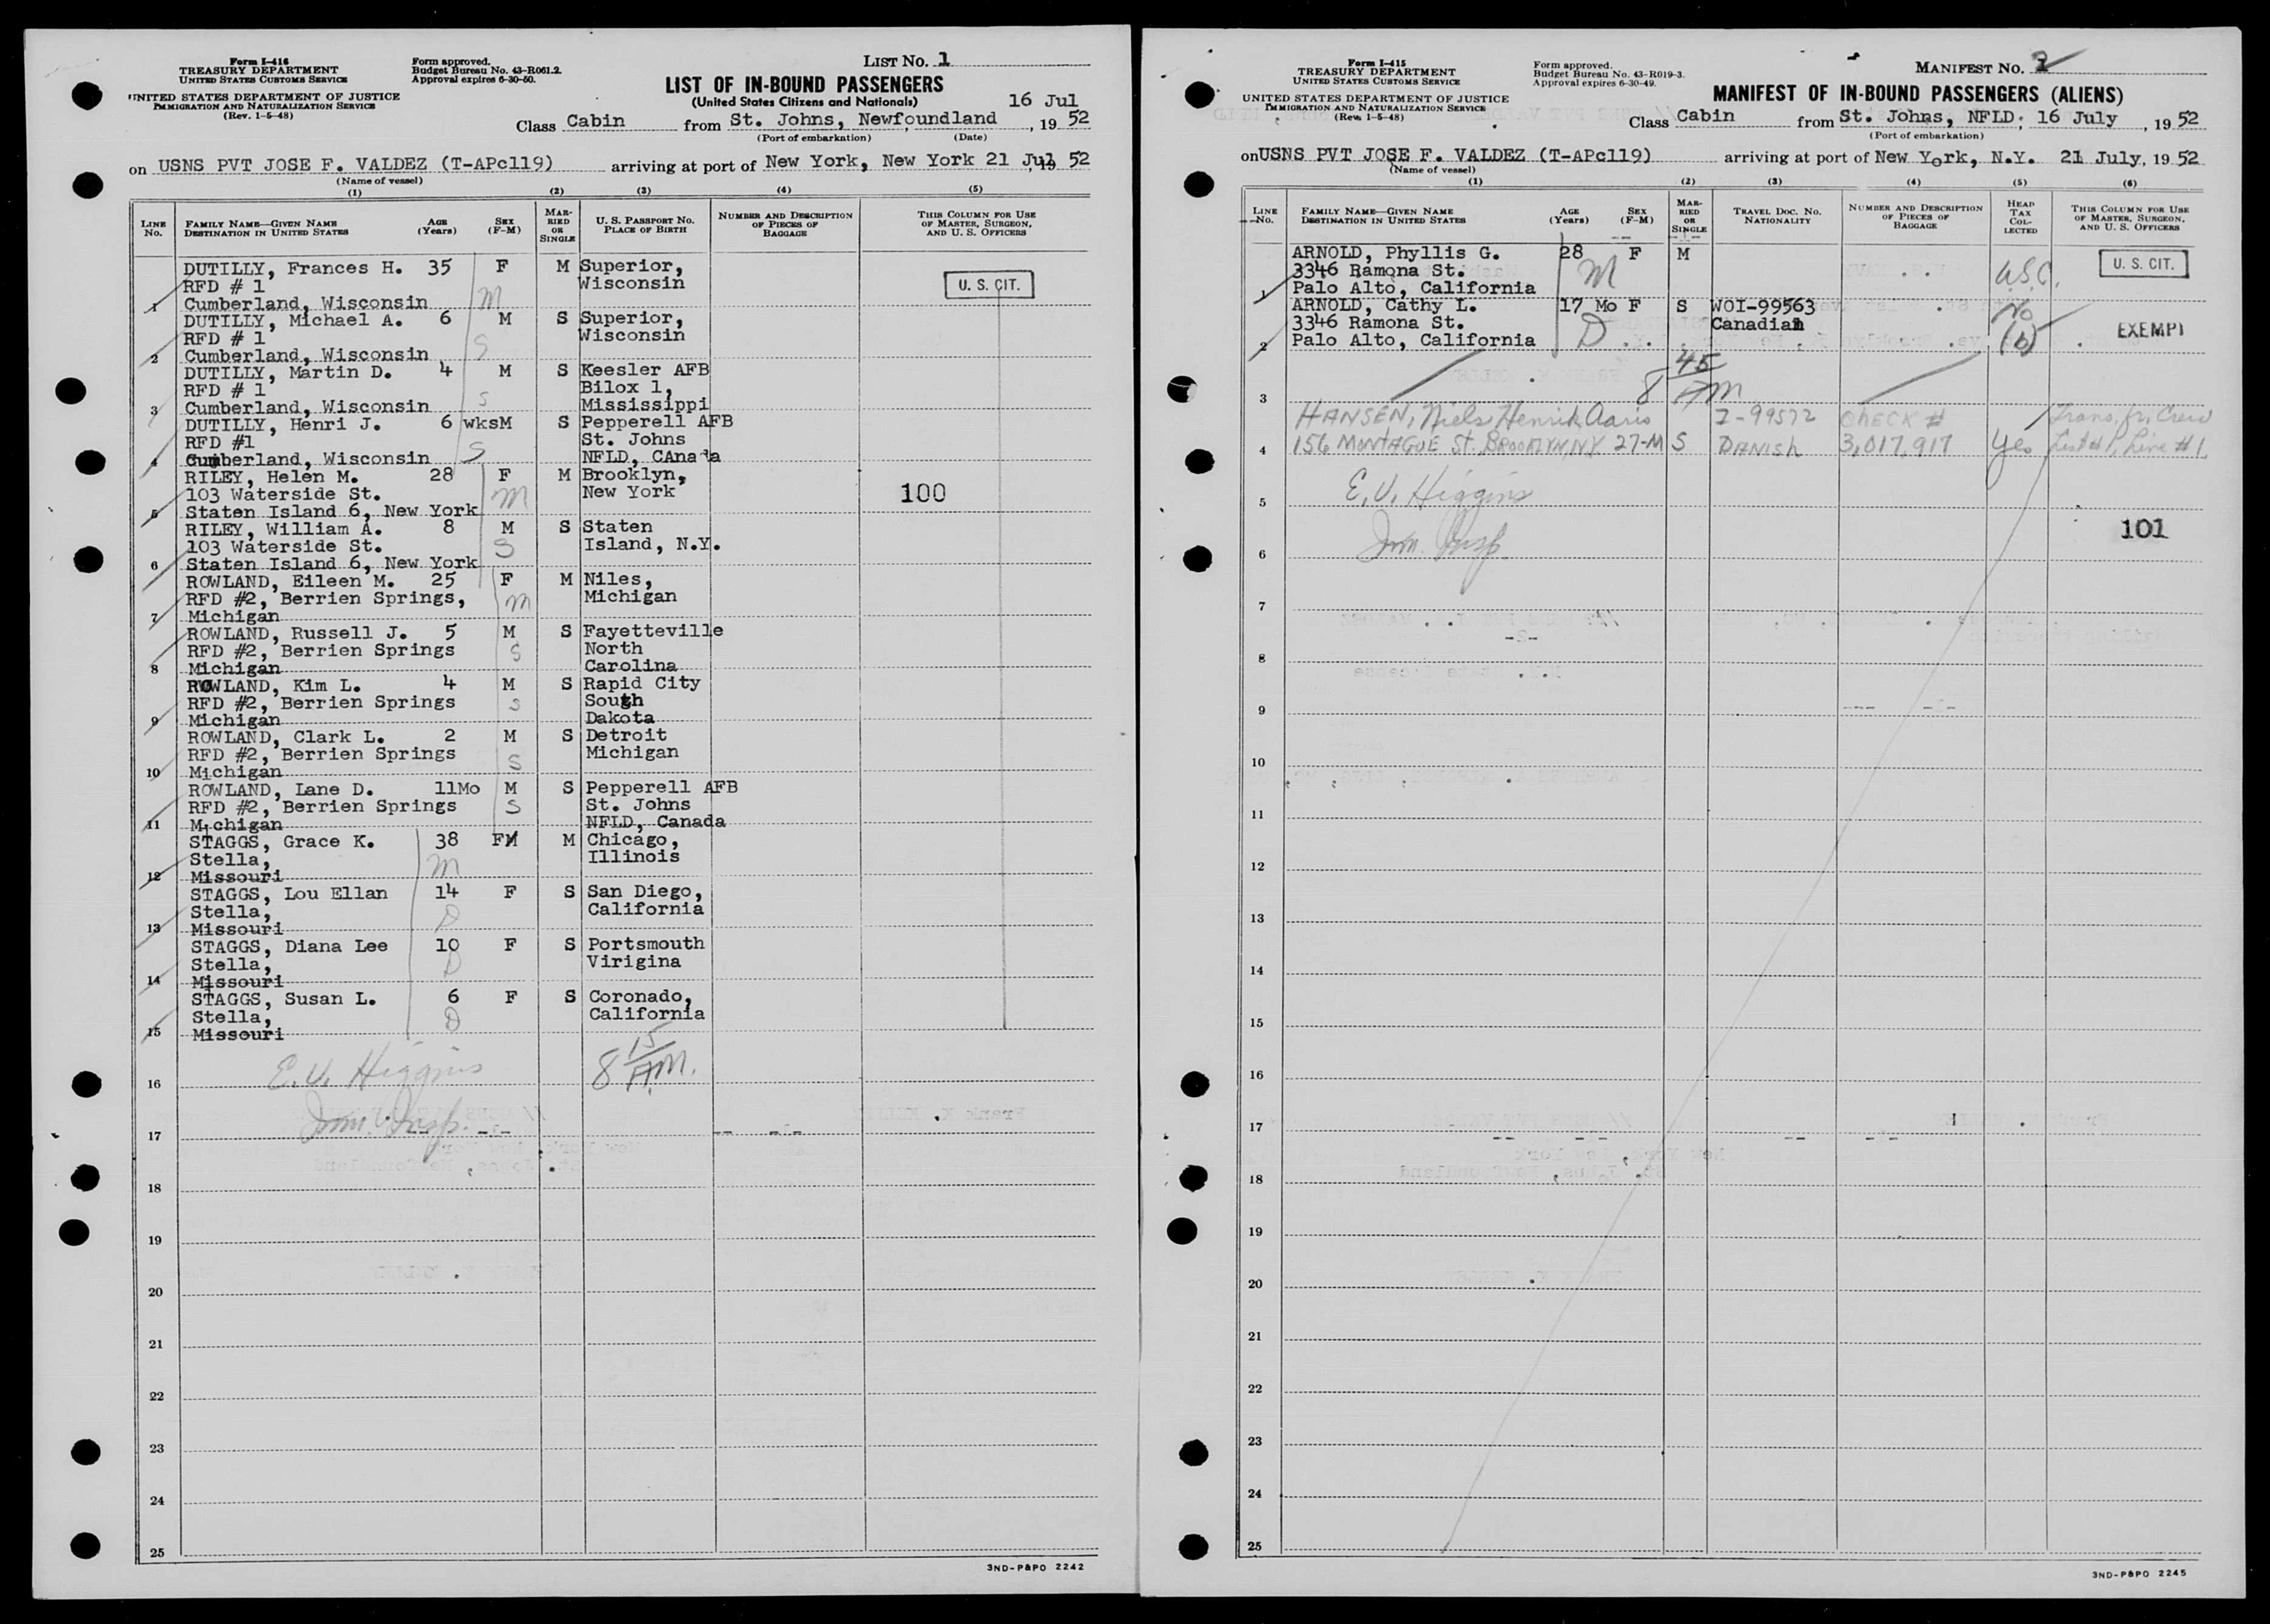 Form I-416
TREASURY DEPARTMENT
UNITED STATES CUSTOMS SERVICE
UNITED STATES DEPARTMENT OF JUSTICE
IMMIGRATION AND NATURALIZATION SERVICE
(Rev. 1-5-48)
Form approved.
Budget Bureau No. 43-R061.2.
Approval expires 6-30-50.
LIST No. 1
LIST OF IN-BOUND PASSENGERS
(United States Citizens and Nationals)
Class Cabin from St. Johns, Newfoundland, 16 Jul, 19 52
(Port of embarkation) (Date)
on USNS PVT JOSE F. VALDEZ (T-APc119) arriving at port of New York, New York 21 Jul, 19 52
(Name of vessel)
(1) (2) (3) (4) (5)
LINE No. FAMILY NAME—GIVEN NAME DESTINATION IN UNITED STATES AGE (Years) SEX (F-M) MARRIED OR SINGLE U. S. PASSPORT No. PLACE OF BIRTH NUMBER AND DESCRIPTION OF PIECES OF BAGGAGE THIS COLUMN FOR USE OF MASTER, SURGEON, AND U. S. OFFICERS
DUTILLY, Frances H. 35 F M Superior,
RFD # 1 Wisconsin U. S. CIT.
1 Cumberland, Wisconsin M
DUTILLY, Michael A. 6 M S Superior,
RFD # 1 Wisconsin
2 Cumberland, Wisconsin S
DUTILLY, Martin D. 4 M S Keesler AFB
RFD # 1 Bilox 1,
3 Cumberland, Wisconsin S Mississippi
DUTILLY, Henri J. 6 wksM S Pepperell AFB
RFD #1 St. Johns
4 Cumberland, Wisconsin S NFLD, CAnada
RILEY, Helen M. 28 F M Brooklyn,
103 Waterside St. M New York 100
5 Staten Island 6, New York
RILEY, William A. 8 M S Staten
103 Waterside St. S Island, N.Y.
6 Staten Island 6, New York
ROWLAND, Eileen M. 25 F M Niles,
RFD #2, Berrien Springs, M Michigan
7 Michigan
ROWLAND, Russell J. 5 M S Fayetteville
RFD #2, Berrien Springs S North
8 Michigan Carolina
ROWLAND, Kim L. 4 M S Rapid City
RFD #2, Berrien Springs S South
9 Michigan Dakota
ROWLAND, Clark L. 2 M S Detroit
RFD #2, Berrien Springs S Michigan
10 Michigan
ROWLAND, Lane D. 11Mo M S Pepperell AFB
RFD #2, Berrien Springs S St. Johns
11 Michigan NFLD, Canada
STAGGS, Grace K. 38 F M Chicago,
Stella, M Illinois
12 Missouri
STAGGS, Lou Ellan 14 F S San Diego,
Stella, D California
13 Missouri
STAGGS, Diana Lee 10 F S Portsmouth
Stella, D Virigina
14 Missouri
STAGGS, Susan L. 6 F S Coronado,
Stella, D California
15 Missouri
16 E. V. Higgins 8 15 AM.
17 Imm. Insp.
18
19
20
21
22
23
24
25
3ND-P&PO 2242
Form I-415
TREASURY DEPARTMENT
UNITED STATES CUSTOMS SERVICE
UNITED STATES DEPARTMENT OF JUSTICE
IMMIGRATION AND NATURALIZATION SERVICE
(Rev. 1-5-48)
Form approved.
Budget Bureau No. 43-R019-3.
Approval expires 6-30-49.
MANIFEST No. 2
MANIFEST OF IN-BOUND PASSENGERS (ALIENS)
Class Cabin from St. Johns, NFLD; 16 July, 19 52
(Port of embarkation)
on USNS PVT JOSE F. VALDEZ (T-APc119) arriving at port of New York, N.Y. 21 July, 19 52
(Name of vessel)
(1) (2) (3) (4) (5) (6)
LINE No. FAMILY NAME—GIVEN NAME DESTINATION IN UNITED STATES AGE (Years) SEX (F-M) MARRIED OR SINGLE TRAVEL DOC. No. NATIONALITY NUMBER AND DESCRIPTION OF PIECES OF BAGGAGE HEAD TAX COLLECTED THIS COLUMN FOR USE OF MASTER, SURGEON, AND U. S. OFFICERS
ARNOLD, Phyllis G. 28 F M U. S. CIT.
3346 Ramona St. M U.S.C.
1 Palo Alto, California
ARNOLD, Cathy L. 17 Mo F S WOI-99563 No
3346 Ramona St. D Canadian (b) EXEMPT
2 Palo Alto, California
3 8 45 AM
HANSEN, Niels Henrik Aaris I-99572 CHECK # Trans. fr. Crew
4 156 MONTAGUE St. BROOKLYN, NY 27-M S DANISH 3,017,917 Yes List #1, Line #1.
5 E. V. Higgins
101
6 Imm. Insp.
7
8
9
10
11
12
13
14
15
16
17
18
19
20
21
22
23
24
25
3ND-P&PO 2245